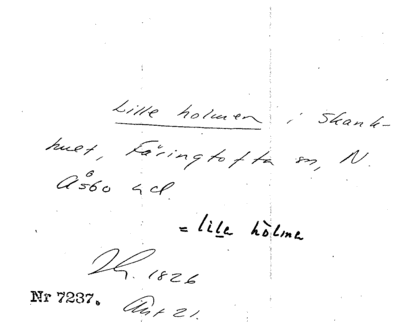 Lille holmen i Skank-
huet, Färingtofta sn, N.
Åsbo hd.
= lile hòlme
1826
Nr 7237. Ant 21.